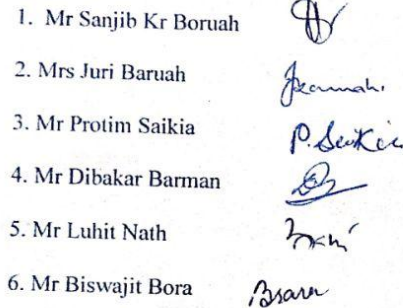 1. Mr Sanjib Kr Boruah
2. Mrs Juri Baruah
3. Mr Protim Saikia P. Saikia
4. Mr Dibakar Barman
5. Mr Luhit Nath
6. Mr Biswajit Bora